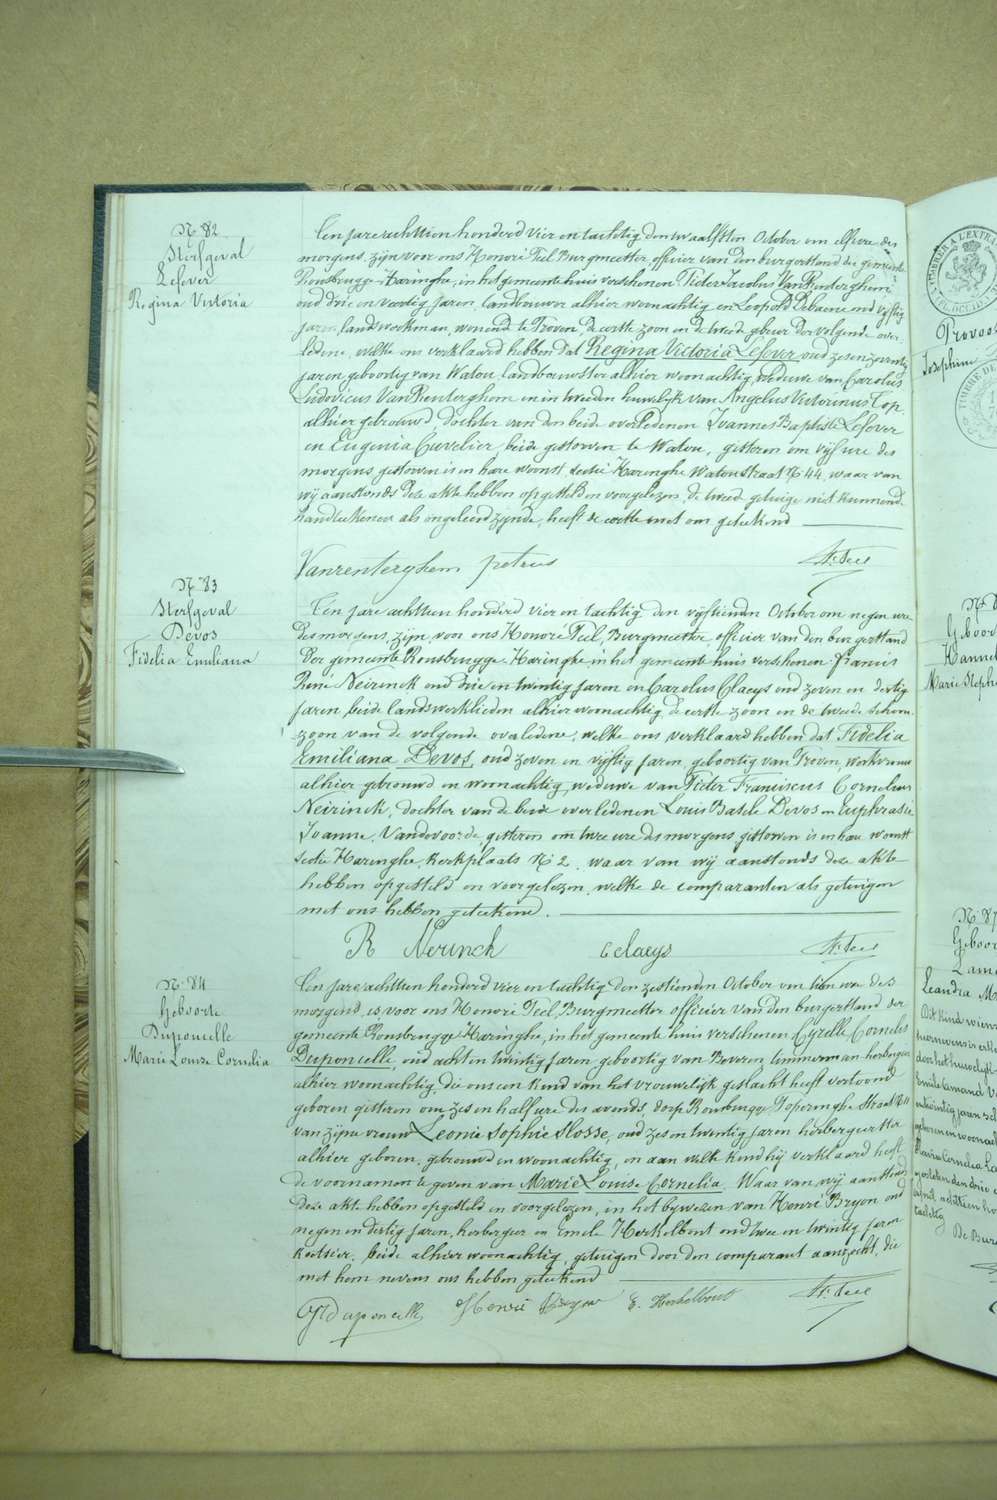 N° 82
Sterfgeval
Lefever
Regina Victoria
Ten jare achttien honderd vier en tachtig den twaalfsten October om elf ure des
morgens, zijn voor ons Honoré Teel Burgmeester officier van den burgerstand der gemeente
Rousbrugge-Haringhe, in het gemeentehuis verschenen Pieter Jacobus Van Renterghem
oud drie en veertig jaren, landbouwer alhier woonachtig en Leopold Debaene oud vijftig
jaren, landswerkman, wonende te Proven, de eerste zoon en de tweede gebuer der volgende over-
ledene, welke ons verklaard hebben dat Regina Victoria Lefever oud zes en zeventig
jaren geboortig van Watou, landbouwster alhier woonachtig, weduwe van Carolus
Ludovicus Van Renterghem en in tweeden huwelijk van Angelus Victorinus Top,
alhier getrouwd, dochter van den beide overledenen Joannes Baptiste Lefever
en Eugenia Cuvelier, beide gestorven te Watou, gisteren om vijf ure des
morgens gestorven is en hare woonst sectie Haringhe Watoustraat N° 44, waar van
wij aanstonds deze akte hebben opgesteld en voorgelezen, de tweede getuige niet kunnende
handteekenen als ongeleerd zijnde, heeft de eerste met ons geteekend
Vanrenterghem petrus H. Teel
N° 83
Sterfgeval
Devos
Fidelia Emiliana
Ten jare achttien honderd vier en tachtig den vijftienden October om negen ure
des morgens, zijn voor ons Honoré Teel, Burgmeester officier van den burgerstand
der gemeente Rousbrugge-Haringhe, in het gemeente huis verschenen Francis
René Neirinck oud drie en twintig jaren en Carolus Claeys oud zeven en dertig
jaren, beide landswerklieden alhier woonachtig, de eerste zoon en de tweede schoon-
zoon van de volgende overledene, welke ons verklaard hebben dat Fidelia
Emiliana Devos, oud zeven en vijftig jaren, geboortig van Proven, werkvrouw
alhier getrouwd en woonachtig, weduwe van Pieter Franciscus Cornelius
Neirinck, dochter van de beide overledenen Louis Basile Devos en Euphrasie
Joanne Vandevoorde, gisteren om twee ure des morgens gestorven is en hare woonst
sectie Haringhe, kerkplaats N° 2, waar van wij aanstonds deze akte
hebben opgesteld en voorgelezen, welke de comparanten als getuigen
met ons hebben geteekend.
R Neirinck C claeys H. Teel
N° 84
Geboorte
Duponcelle
Marie Louise Cornelia
Ten jare achttien honderd vier en tachtig den zestienden October om tien ure des
morgens, is voor ons Honoré Teel, Burgmeester officier van den burgerstand der
gemeente Rousbrugge-Haringhe, in het gemeente huis verschenen Cyrille Cornelis
Duponcelle, oud acht en twintig jaren geboortig van Beveren, timmerman-herbergier
alhier woonachtig, die ons een kind van het vrouwelijk geslacht heeft vertoond
geboren gisteren om zes en half ure des avonds, dorp Rousbrugge Poperinghe Straat N° 11
van zijne vrouw Leonie Sophie Slosse, oud zes en twintig jaren herbergierster
alhier geboren, getrouwd en woonachtig, en aan welke kind hij verklaard heeft
de voornamen te geven van Marie Louise Cornelia. Waar van wij aanstonds
deze akte hebben opgesteld en voorgelezen, in het bijwezen van Henri Bryon oud
negen en dertig jaren, herbergier en Emile Herkelbout oud twee en twintig jaren
koetsier, beide alhier woonachtig, getuigen door den comparant aanzocht, die
met hem nevens ons hebben geteekend
C Duponcelle Henri Bryon E. Herkelbout H. Teel
Provoost
Geboorte
Marie Steph
N° 87
Geboor
Lame
Leandra M